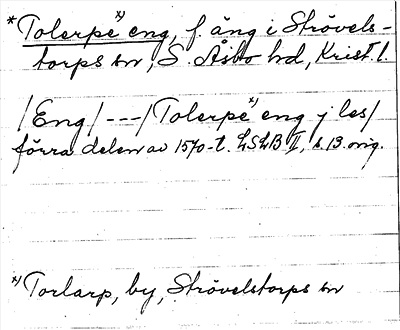 *Tolerpe x) eng, f. äng i Strövels-
torps sn, S. Åsbo hd, Krist. l.
/Eng/ ---/Tolerpe x) eng j les/
förra delen av 1570-t. LSLB II, s. 13. orig.
x) Torlarp, by, Strövelstorps sn